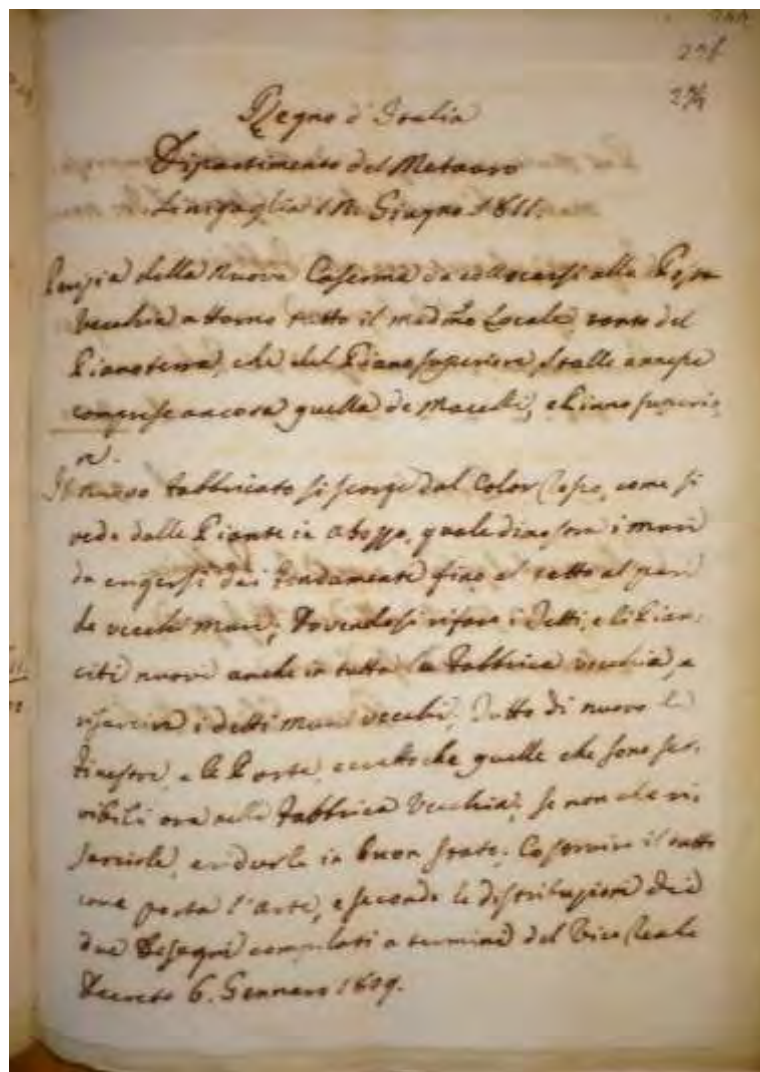 294
Regno d'Italia
Dipartimento del Metauro
Sinigaglia Giugno 1811.
Perizia della Nuova Caserma da collocarsi alla Posta
Vecchia attorno tutto il medmo Locale, tanto del
Pianoterra, che del Piano superiore, Stalle annesse
comprese ancora quella de Macelli, e Piano superio,
re.
Il nuovo Fabbricato si scorge dal Color Rosso, come si
vede dalle Piante in abozzo, quale dimostra i muri
da ergersi dai Fondamenti fino al tetto al pari
de vecchi muri; Dovendosi rifare i Tetti, e li Pian,
citi nuovi anche in tutta la Fabbrica vecchia, e
risarcire i detti muri vecchi; Tutto di nuovo le
Finestre, e le Porte, eccetto che quelle che sono ser,
vibili ora nella Fabbrica Vecchia; se non che ri,
sarcirle, e ridurle in buon stato; Costruire il tutto
come porta l'arte, e secondo le distribuzioni dei
due Disegni compilati a termine del Vice Reale
Decreto 6. Gennaro 1809.